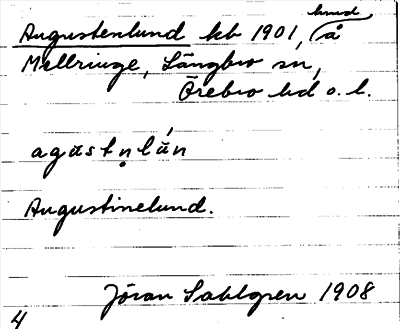 hmd
Augustenlund kb 1901, (å
Mellringe, Längbro sn,
Örebro hd o. l.
agᵾstn̥lǘn
Augustinelund.
Jöran Sahlgren 1908
4